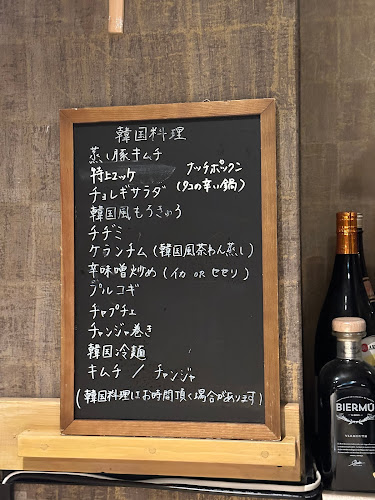 韓国料理
蒸し豚キムチ
特上ユッケ
ナッチポックン
(タコの辛い鍋)
チョレギサラダ
韓国風もうきゅう
チヂミ
ケランチム(韓国風茶わん蒸し)
辛味噌炒め(イカ OR セセリ)
プルコギ
チャプチェ
チャンジャ巻き
韓国冷麺
キムチ / チャンジャ
(韓国料理はお時間頂く場合があります)
BIERMÚ